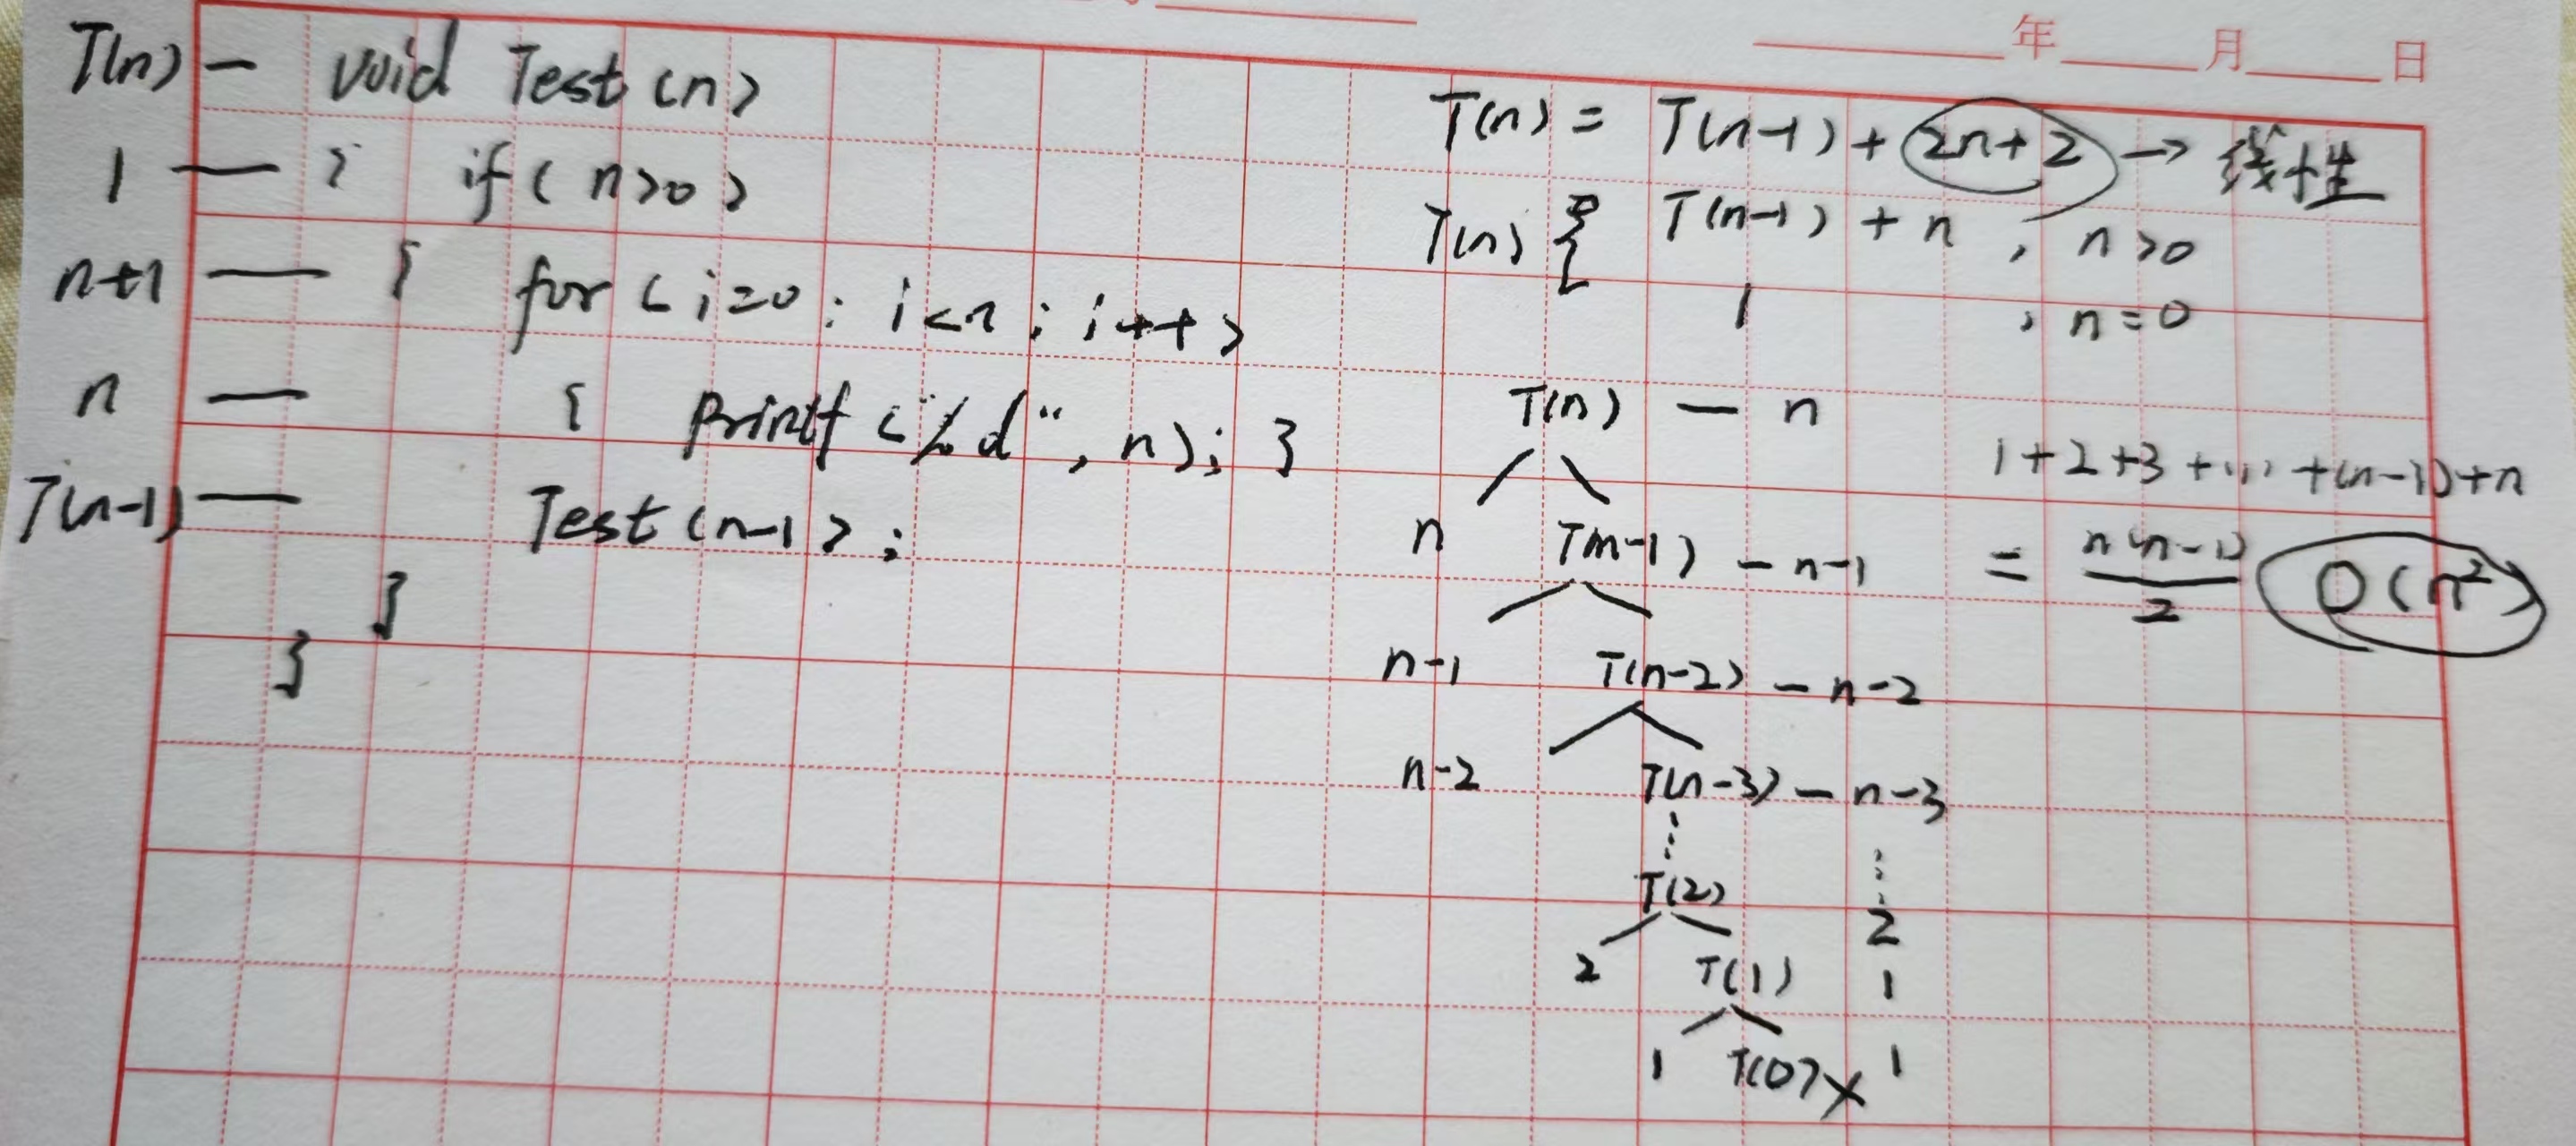 年 月 日
T(n) — void Test(n)
1 — { if(n>0)
n+1 — { for(i=0; i<n; i++)
n — { printf("%d", n); }
T(n-1) — Test(n-1);
}
}
T(n) = T(n-1) + 2n+2 → 线性
T(n) { T(n-1) + n , n>0
1 , n=0
T(n) — n
n T(n-1) — n-1
n-1 T(n-2) — n-2
n-2 T(n-3) — n-3
⋮ ⋮
T(2) 2
2 T(1) 1
1 T(0) × 1
1+2+3+...+(n-1)+n
= n(n-1)/2 O(n²)